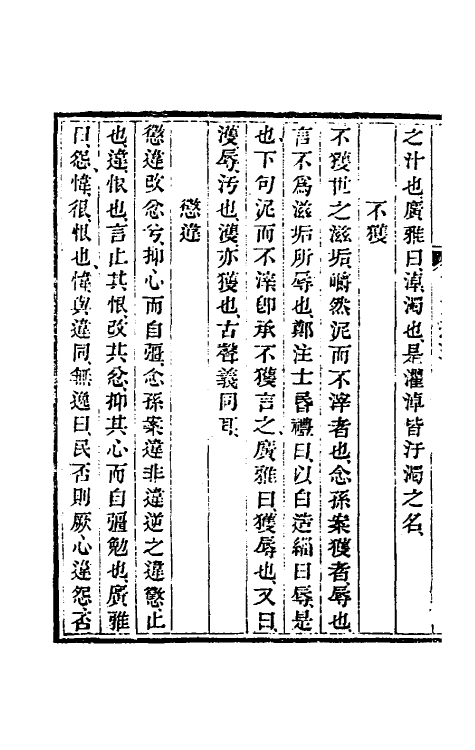 之汁也廣雅曰淖濁也是濯淖皆汙濁之名
不獲
不獲世之滋垢皭然泥而不滓者也念孫案獲者辱也
言不爲滋垢所辱也鄭注士昏禮曰以白造緇曰辱是
也下句泥而不滓卽承不獲言之廣雅曰獲辱也又曰
濩辱汚也濩亦獲也古聲義同耳
懲違
懲違改忿兮抑心而自彊念孫案違非違逆之違懲止
也違恨也言止其恨改其忿抑其心而自彊勉也廣雅
曰怨愇很恨也愇與違同無逸曰民否則厥心違怨否